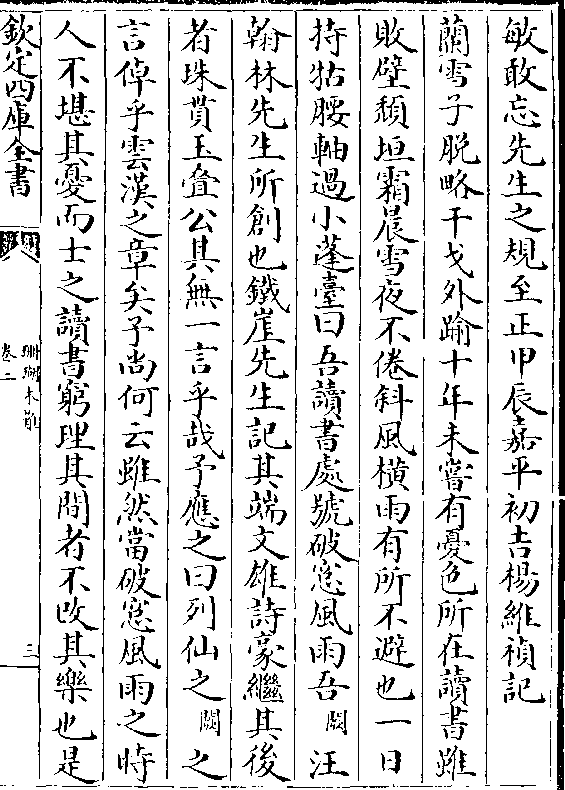 敏敢忘先生之規至正甲辰嘉平初吉楊維禎記
蘭雪子脱略干戈外踰十年未嘗有憂色所在讀書雖
敗壁頽垣霜晨雪夜不倦斜風横雨有所不避也一日
持牯腰軸過小蓬臺曰吾讀書處號破窻風雨吾闕汪
翰林先生所創也鐵崖先生記其端文雄詩豪繼其後
者珠貫玉疊公其無一言乎哉予應之曰列仙之闕之
言倬乎雲漢之章矣予尚何云雖然當破窻風雨之時
人不堪其憂而士之讀書窮理其間者不改其樂也是
欽定四庫全書
珊瑚木難
卷二
三